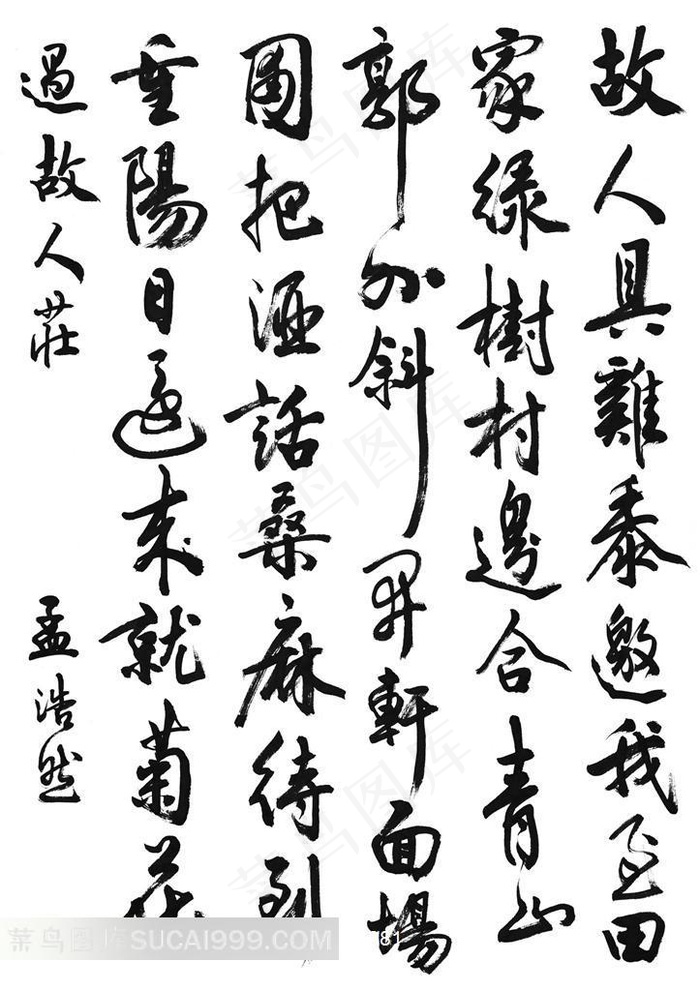 故人具雞黍邀我至田
家綠樹村邊合青山
郭外斜開軒面場
圃把酒話桑麻待到
重陽日還來就菊花
過故人莊
孟浩然
菜鸟图库SUCAI999.COM
81
菜鸟图库